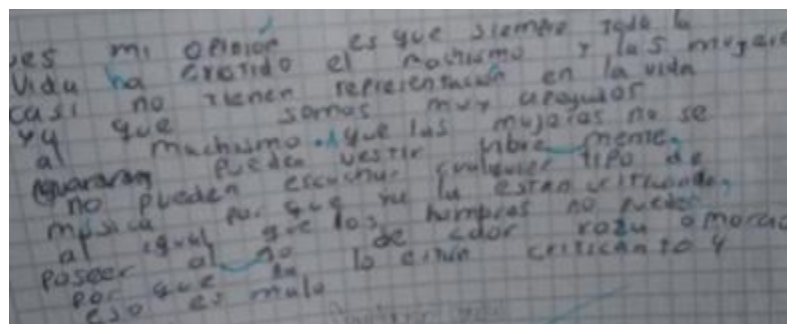 es mi opinion es que siempre toda la
vida ha existido el machismo y las mujere
casi no tienen representación en la vida
ya que somos muy apegados
al machismo. que las mujeres no se
pueden vestir libre mente,
no pueden escuchar cualquier tipo de
musica por que ya la estan criticando,
al igual que los hombres no pueden
poseer de color rozu o morado
por que ya lo estan criticanto y
eso es malo